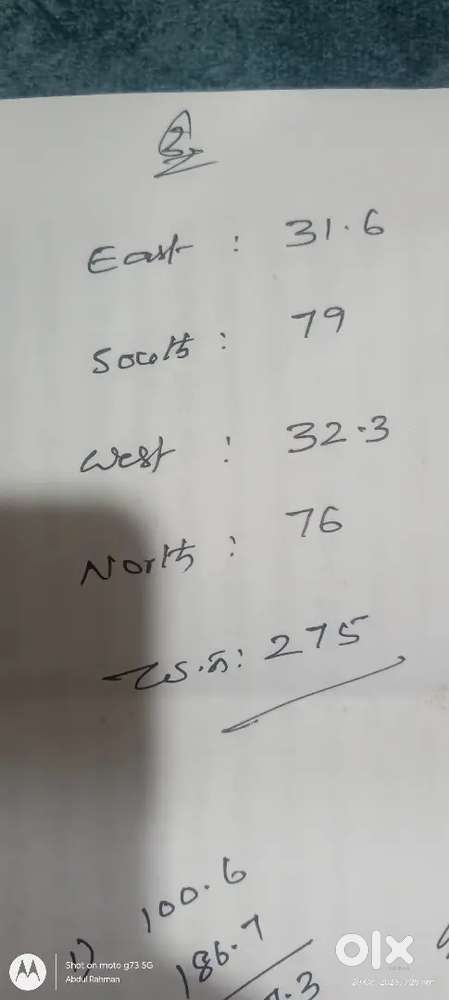 2.
East : 31.6
South : 79
West : 32.3
North : 76
ச.க: 275
100.6
1)
186.7
Shot on moto g73 5G
Abdul Rahman
olx